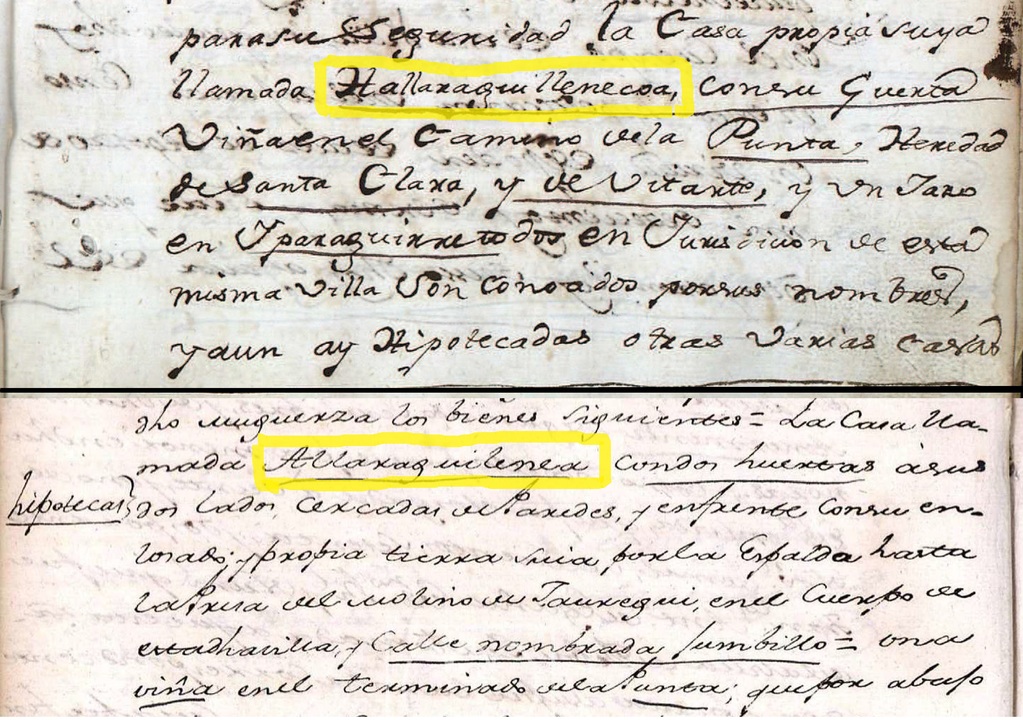 parasu Seguridad la Casa propia suya
llamada Hallaraguillenecoa, consu Guerta
Viña en el Camino de la Punta, Heredad
de Santa Clara, y de Vitarte, y Un Jaro
en Yparaguirre todos en Jurisdicion de esta
misma Villa Son conoados porsus nombres,
y aun ay Hipotecadas otras Varias casas
dho muguerza los bienes siguientes = La Casa lla-
mada Allaraguilenea Condos huertas àsus
hipotecas dos lados, cercadas de Paredes, y enfrente Consu en-
losado; y propia tierra suia, por la Espalda hasta
la Presa del Molino de Jauregui, en el Cuerpo de
esta dha villa, y Calle nombrada sumbillo = una
viña en el terminado de la Punta; que por abaso